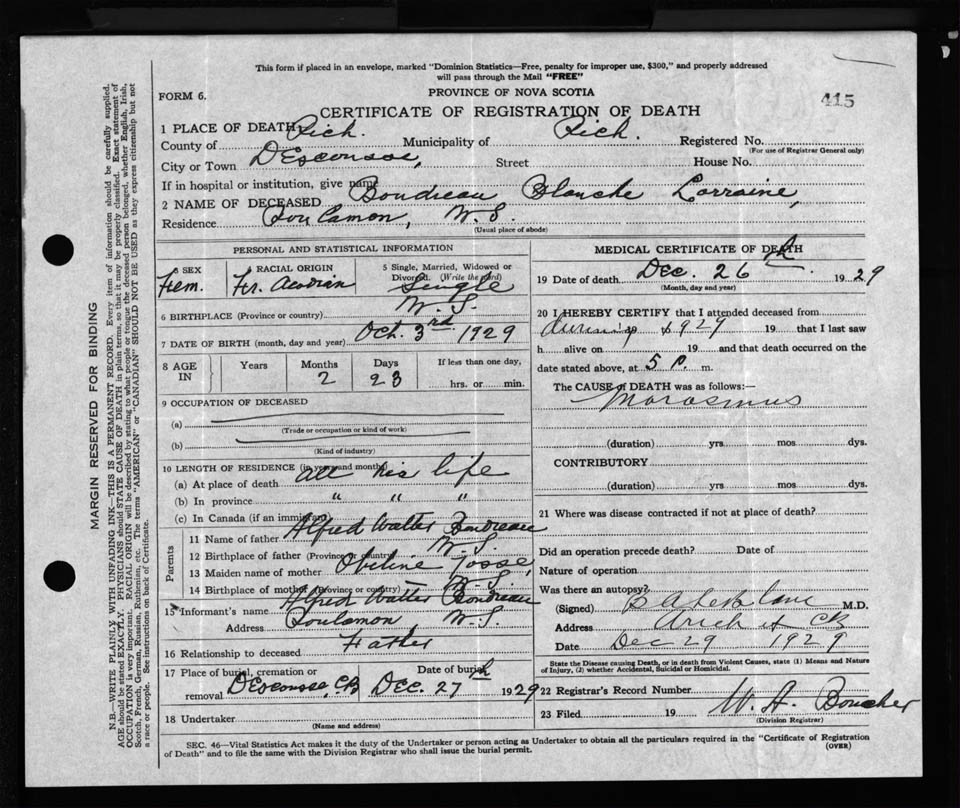 This form if placed in an envelope, marked "Dominion Statistics—Free, penalty for improper use, $300," and properly addressed
will pass through the Mail "FREE"
FORM 6.
PROVINCE OF NOVA SCOTIA
415
CERTIFICATE OF REGISTRATION OF DEATH
1 PLACE OF DEATH
County of Rich. Municipality of Rich. Registered No.
(For use of Registrar General only)
City or Town Descousse, Street House No.
If in hospital or institution, give name
2 NAME OF DECEASED Boudreau Blanche Lorraine,
Residence Poulamon, N.S.
(Usual place of abode)
PERSONAL AND STATISTICAL INFORMATION
3 SEX
Fem.
4 RACIAL ORIGIN
Fr. Acadian
5 Single, Married, Widowed or
Divorced. (Write the word)
Single
6 BIRTHPLACE (Province or country) N.S.
7 DATE OF BIRTH (month, day and year) Oct. 3rd 1929
8 AGE
IN
Years
Months
2
Days
23
If less than one day,
hrs. or min.
9 OCCUPATION OF DECEASED
(a)
(Trade or occupation or kind of work)
(b)
(Kind of industry)
10 LENGTH OF RESIDENCE (in years and months)
(a) At place of death all his life
(b) In province " " "
(c) In Canada (if an immigrant)
Parents
11 Name of father Alfred Walter Boudreau
12 Birthplace of father (Province or country) N.S.
13 Maiden name of mother Obeline Josse,
14 Birthplace of mother (Province or country) N.S.
15 Informant's name Alfred Walter Boudreau
Address Poulamon N.S.
16 Relationship to deceased Father
17 Place of burial, cremation or
removal Descousse, CB
Date of burial
Dec. 27th 1929
18 Undertaker
(Name and address)
MEDICAL CERTIFICATE OF DEATH
19 Date of death Dec. 26th 1929
(Month, day and year)
20 I HEREBY CERTIFY that I attended deceased from
during 1929 19 that I last saw
h alive on 19 and that death occurred on the
date stated above, at 5 p. m.
The CAUSE OF DEATH was as follows:—
Marasmus
(duration) yrs. mos dys.
CONTRIBUTORY
(duration) yrs mos dys.
21 Where was disease contracted if not at place of death?
Did an operation precede death? Date of
Nature of operation
Was there an autopsy?
(Signed) M.D.
Address Arichat CB
Date Dec 29 1929
State the Disease causing Death, or in death from Violent Causes, state (1) Means and Nature
of Injury, (2) whether Accidental, Suicidal or Homicidal.
22 Registrar's Record Number
23 Filed 19 W. A. Boucher
(Division Registrar)
SEC. 46—Vital Statistics Act makes it the duty of the Undertaker or person acting as Undertaker to obtain all the particulars required in the "Certificate of Registration
of Death" and to file the same with the Division Registrar who shall issue the burial permit.
(OVER)
MARGIN RESERVED FOR BINDING
N.B.—WRITE PLAINLY WITH UNFADING INK—THIS IS A PERMANENT RECORD. Every item of information should be carefully supplied.
AGE should be stated EXACTLY. PHYSICIANS should STATE CAUSE OF DEATH in plain terms, so that it may be properly classified. Exact statement of
OCCUPATION is very important. RACIAL ORIGIN will be described by stating to what people or tongue the deceased person belonged, whether English, Irish,
Scotch, French, German, Russian, Ruthenian, etc. The terms "AMERICAN" or "CANADIAN" SHOULD NOT BE USED as they express citizenship but not
a race or people. See instructions on back of Certificate.